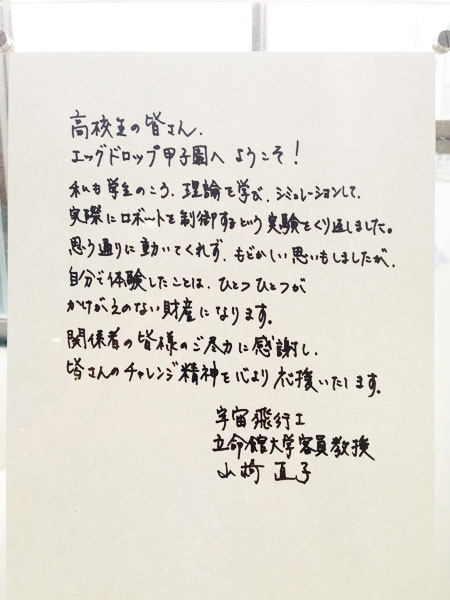 高校生の皆さん、
エッグドロップ甲子園へ ようこそ!
私も学生のころ、理論を学び、シミュレーションして、
実際にロボットを制御するという実験をくり返しました。
思う通りに動いてくれず、もどかしい思いもしましたが、
自分で体験したことは、ひとつひとつが
かけがえのない財産になります。
関係者の皆様のご尽力に感謝し、
皆さんのチャレンジ精神を心より応援いたします。
宇宙飛行士
立命館大学客員教授
山崎 直子